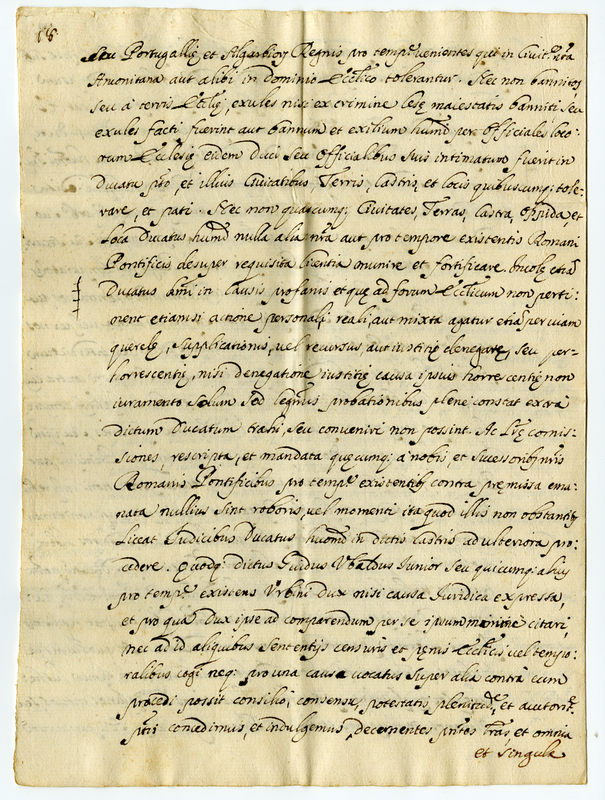 18
seu Portugallię et Algarbior Regnis pro temp.e venientes qui in Civit.e nr̃a
Anconitana aut alibi in dominio Ecclico tolerantur. Nec non bannitos
seu à terris Ecclię, exules nisi ex crimine lesę maiestatis banniti, seu
exules facti fuerint aut bannum et exilium huiusmõi per officiales loco-
rum Ecclesię eidem Duci seu officialibus suis intimatum fuerit in
Ducatu p̃to, et illius Civitatibus Terris, Castris, et locis quibuscumq; tole-
rare, et pati. Nec non quascumq; Civitates, Terras, Castra, oppida, et
Loca Ducatus huiusmõi nulla alia nr̃a aut pro tempore existentis Romani
Pontificis desuper requisita licentia munire et fortificare. Incolę etiã
Ducatus h̃mõi in Causis profanis et quę ad forum Ecclicum non perti-
nent etiamsi actione personali, reali, aut mixta agatur etiã per viam
querelę, supplicationis, vel recursus, aut iustitię denegatę, seu per-
horrescentię, nisi denegatione iustitię causa ipsius horrescentię non
iuramento solum sed legitimis probationibus plene constat extra
dictum Ducatum trahi, seu conveniri non possint. Ac Lr̃ę comis-
siones, rescripta, et mandata quęcumq; a nobis, et sucessorib; nr̃is
Romanis Pontificibus pro temp.e existentib; contra pręmissa ema-
nata nullius sint roboris, vel momenti ita quod illis non obstantib;
Liceat Iudicibus Ducatus huiusmõi in dictis Castris ad ulteriora pro-
cedere. Quodq; dictus Guidus Ubaldus Iunior seu quicumq; alius
pro temp.e existens Urbini Dux nisi causa Iuridica expressa,
et pro qua Dux ipse ad comparendum per se ipsum minime citari,
nec ad id aliquibus sententijs censuris et pęnis Ecclicis vel tempo-
ralibus cogi neq; pro una causa vocatus super alia contrà eum
procedi possit consilio, consensu, potestatis plenitud.e, et auctorit.e
p̃tis concedimus, et indulgemus, decernentes p̃ntes Lr̃as et omnia
et singula